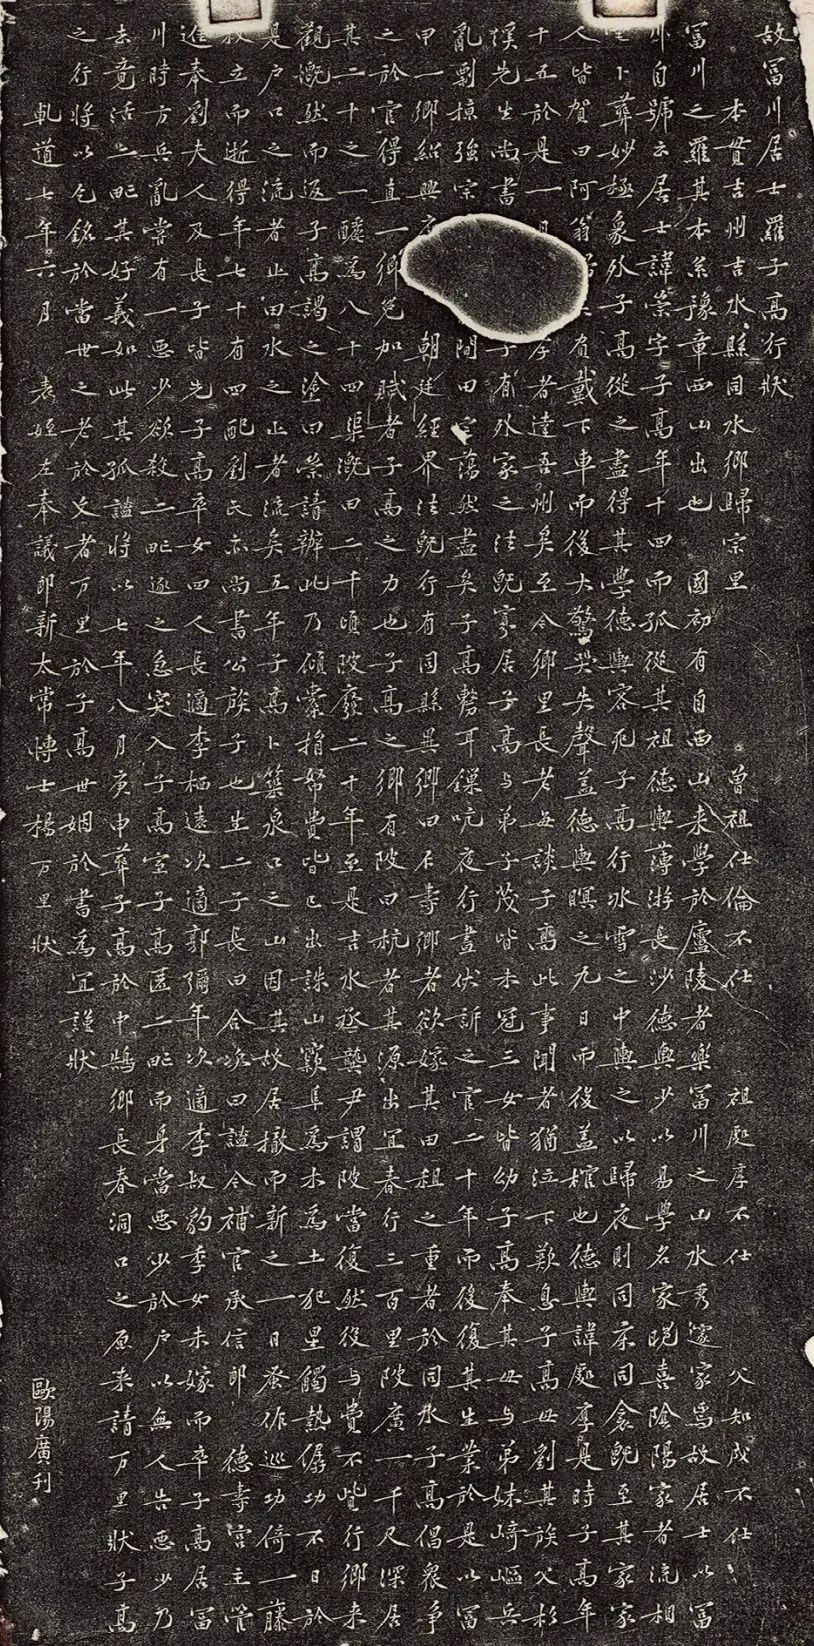 故富川居士羅子高行狀
本貫吉州吉水縣同水鄉歸宗里 曾祖仕倫不仕 祖處厚不仕 父知成不仕
富川之羅其本系豫章西山出也 國初有自西山来學於廬陵者樂富川之山水秀邃家焉故居士以富
川自號云居士諱棠字子高年十四而孤從其祖德輿薄游長沙德輿少以易學名家晚喜陰陽家者流相
卜葬妙極象外子高從之盡得其學德輿客死子高行冰雪之中輿之以歸夜則同床同衾既至其家家
人皆賀曰阿翁 負戴下車而後大驚哭失聲蓋德輿暝之九日而後蓋棺也德輿諱處厚是時子高年
十五於是一 孝者達吾州矣至今鄉里長老每談子高此事聞者猶泣下歎息子高母劉其族父杉
溪先生尚書 子有外家之法既寡居子高与弟子茂皆未冠三女皆幼子高奉其母与弟妹崎嶇兵
亂剽掠強宗 間田宅蕩然盡矣子高礱耳鏁吭夜行晝伏訴之官二十年而後復其生業於是以富
甲一鄉紹興 朝廷經界法既行有同縣異鄉曰石壽鄉者欲嫁其田租之重者於同水子高倡衆争
之於官得直一鄉免加賦者子高之力也子高之鄉有陂曰杭者其源出宜春行三百里陂廣一千尺深居
其二十之一釃為八十四渠溉田二千頃陂廢二十年至是吉水丞龔尹謂陂當復然役与費不貲行鄉来
觀慨然而返子高謁之塗曰棠請辦此乃傾橐捐帑費皆己出誅山竅阜為木為土犯星觸熱僝功不日於
是户口之流者止田水之止者流矣五年子高卜築泉口之山因其故居撤而新之一日蚤作巡功倚一藤
杖立而逝得年七十有四配劉氏亦尚書公族子也生二子長曰合次曰謐合補官承信郎 德壽宫主管
進奉劉夫人及長子皆先子高卒女四人長適李栖遠次適郭彌年次適李叔豹季女未嫁而卒子高居富
川時方兵亂嘗有一惡少欲殺二甿逐之急突入子高室子高匿二甿而身當惡少於户以無人告惡少乃
去竟活二甿其好義如此其孤謐將以七年八月庚申葬子高於中鵠鄉長春洞口之原来請万里狀子高
之行將以乞銘於當世之老於文者万里於子高世姻於書為宜謹狀
軋道七年六月 表姪左奉議郎新太常博士楊万里狀
歐陽廣刊